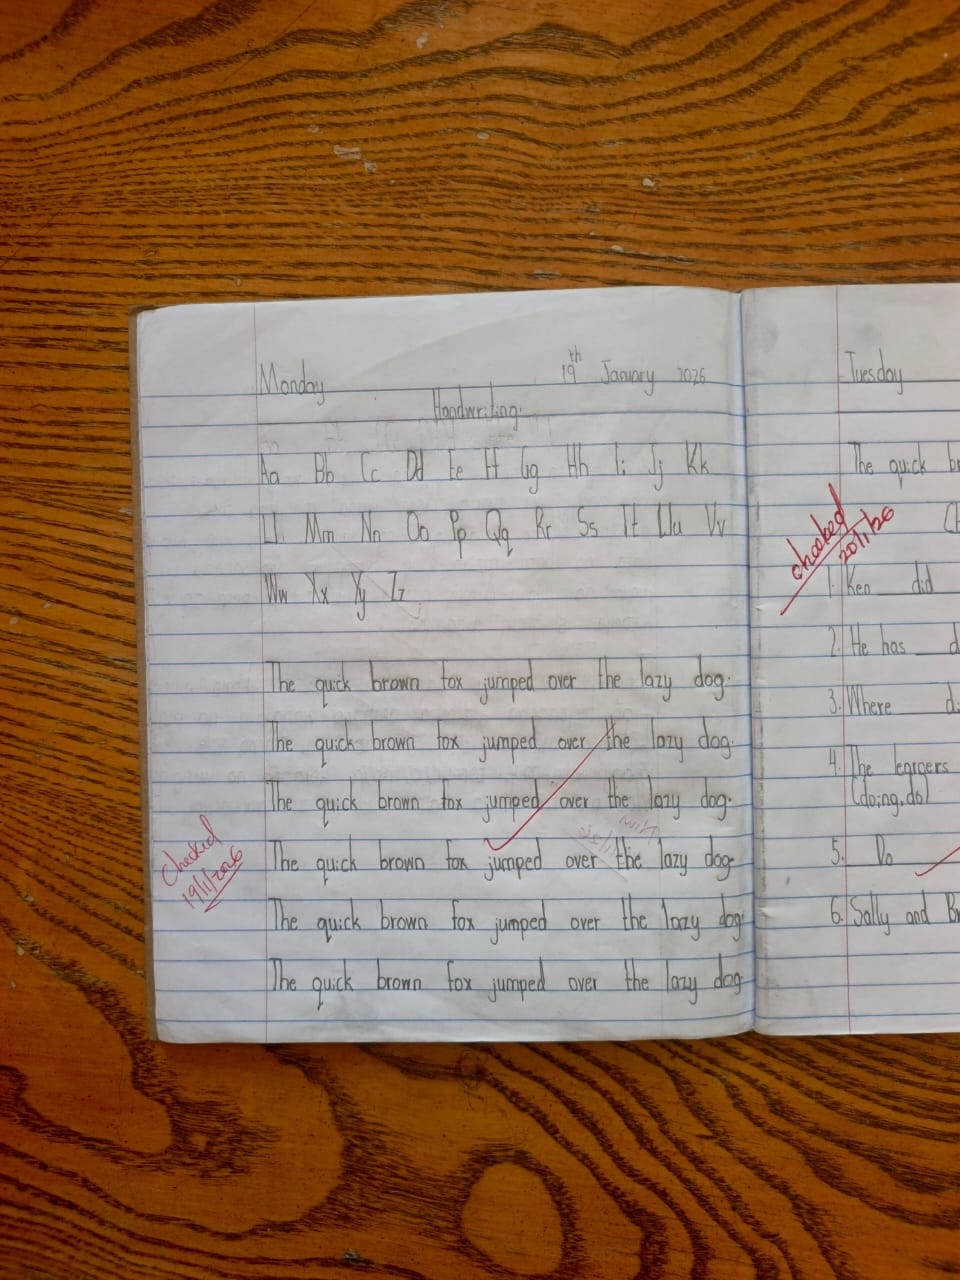 Monday 19th January 2026
Handwriting.
Aa Bb Cc Dd Ee Ff Gg Hh Ii Jj Kk
Ll Mm Nn Oo Pp Qq Rr Ss Tt Uu Vv
Ww Xx Yy Zz
The quick brown fox jumped over the lazy dog.
The quick brown fox jumped over the lazy dog.
The quick brown fox jumped over the lazy dog.
The quick brown fox jumped over the lazy dog.
The quick brown fox jumped over the lazy dog.
The quick brown fox jumped over the lazy dog.
Checked
19/1/2026
Tuesday
The quick br
checked
20/1/26
1. Ken ___ did
2. He has ___ d
3. Where ___ d
4. The learners
(doing, do)
5. Do
6. Sally and Br